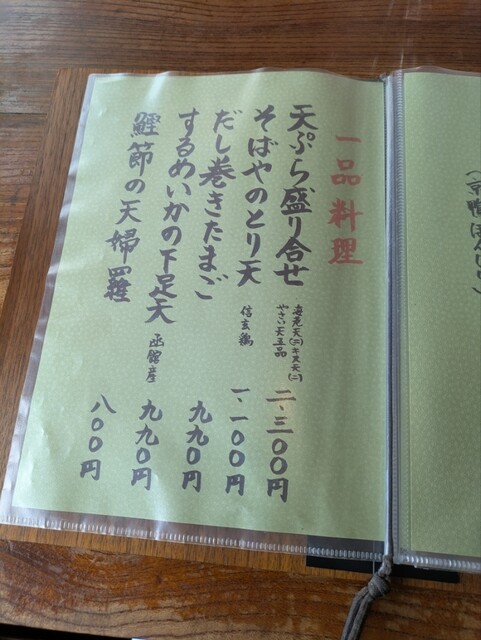 一品料理
天ぷら盛り合せ 海老天(二)キス天(二) やさい天五品 二、三〇〇円
そばやのとり天 信玄鶏 一、一〇〇円
だし巻きたまご 九九〇円
するめいかの下足天 函館産 九九〇円
鰹節の天婦羅 八〇〇円